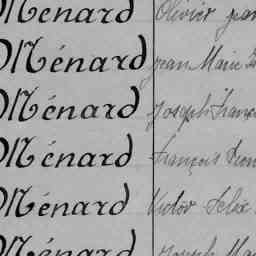 Ménard Olivier
Ménard Jean Marie
Ménard Joseph François
Ménard François
Ménard Victor Felix
Ménard Joseph